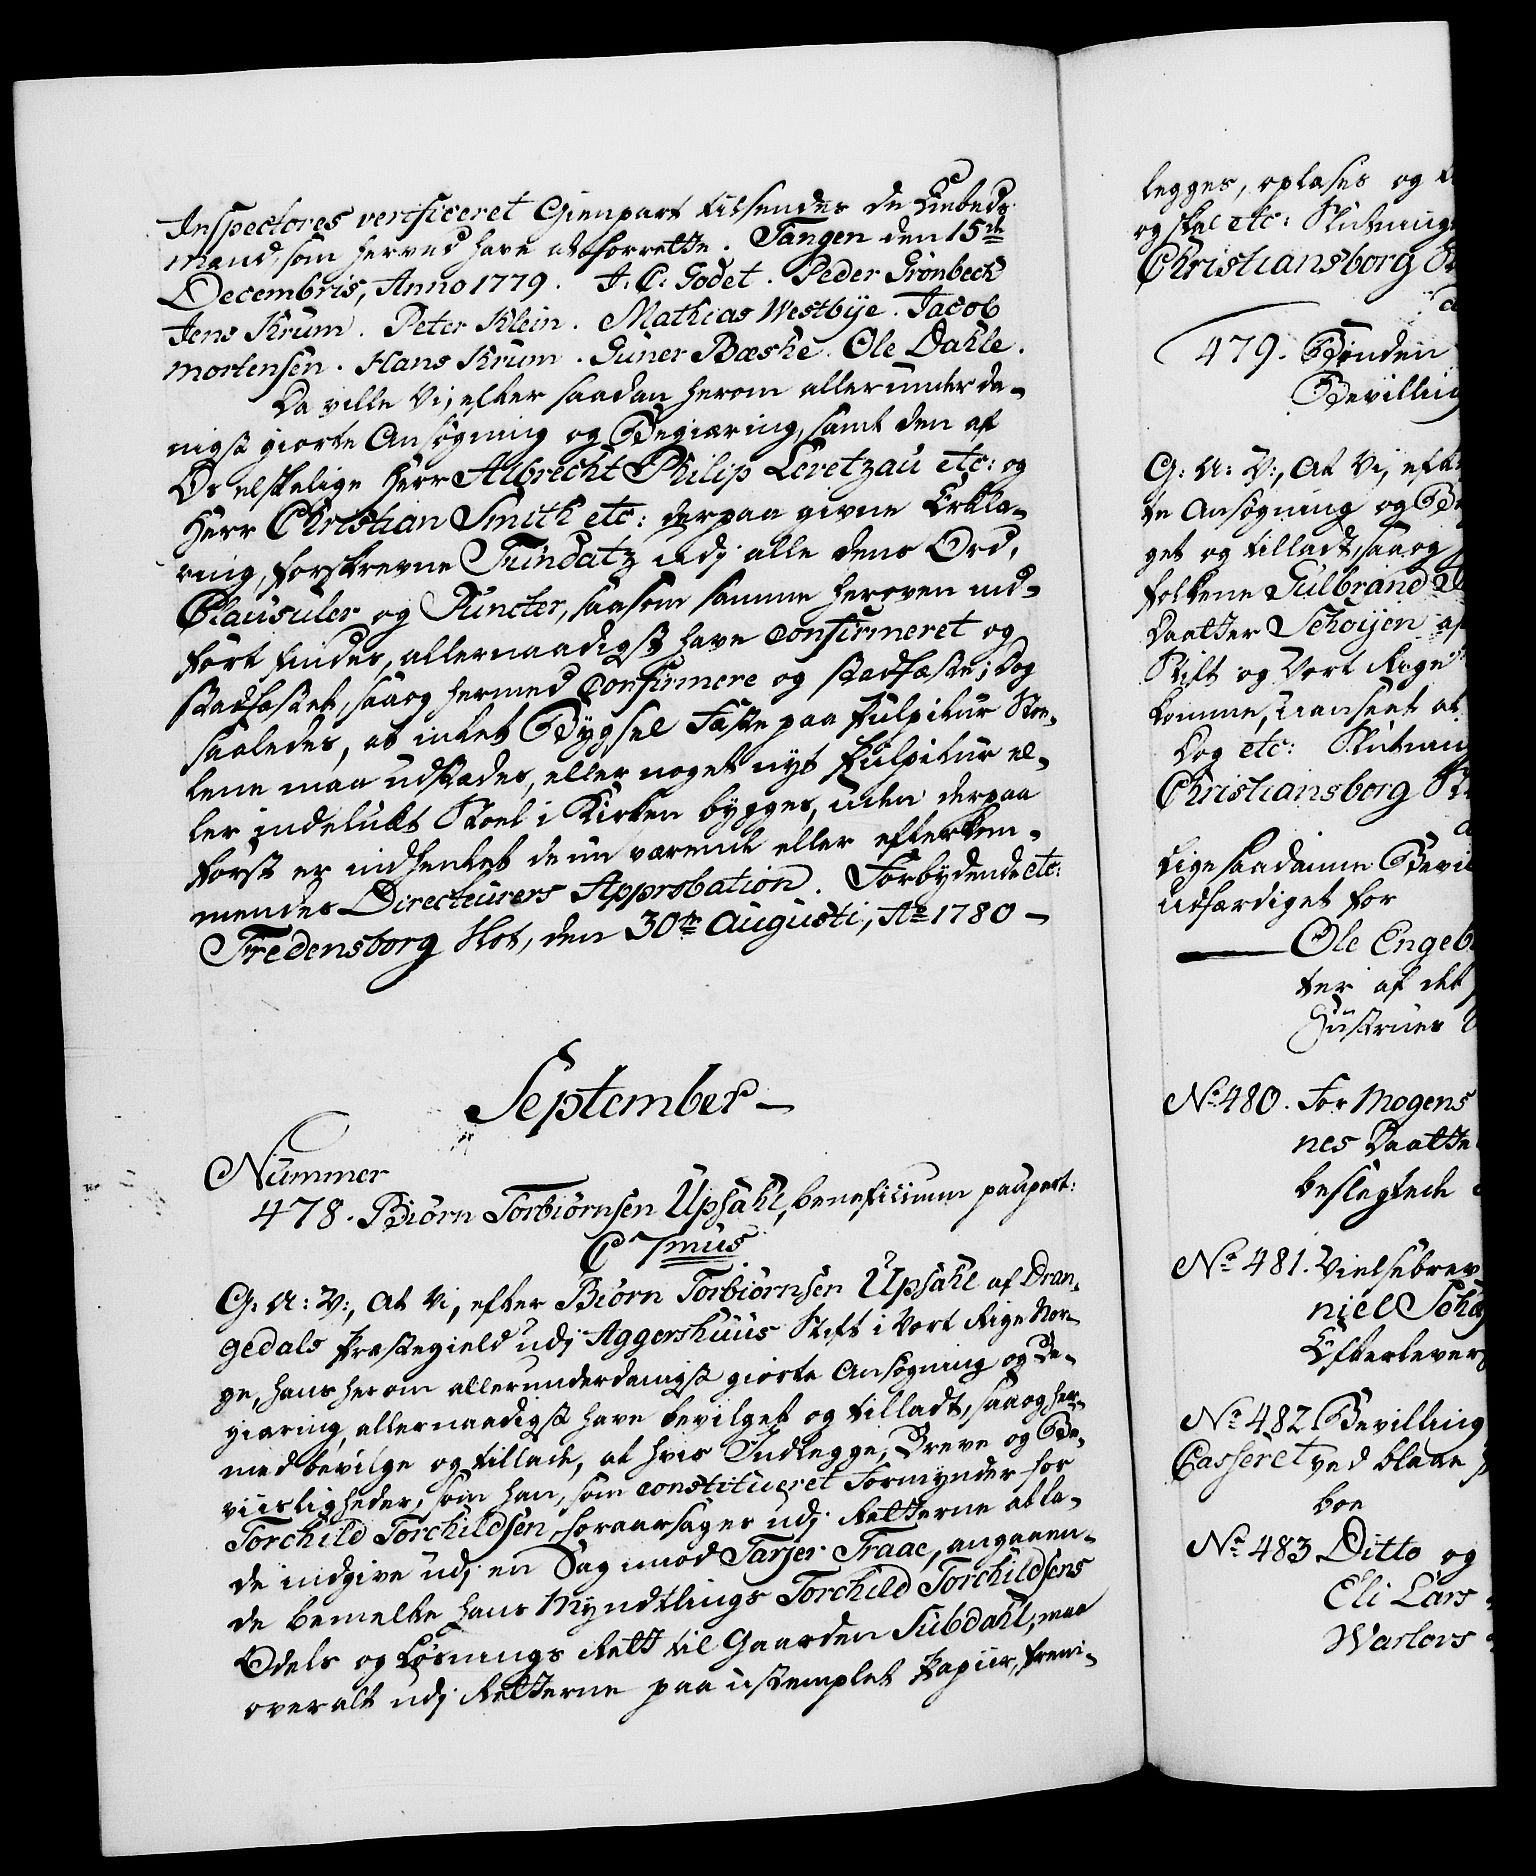 Inspectores verificeret Gienpart tilsendes de
Mænd, som herved have at forrette. Tangen den 15de
Decembris, Anno 1779. J. C. Godet. Peder Grönbech
Jens Krum. Peter Klein. Mathias Westbye. Jacob
Mortensen. Hans Krum. Guner Bæske. Ole Dahle.
Da ville Vi, efter saadan herom allerunderda-
nigst giorte Ansøgning og Begiæring, samt den af
Os elskelige Herr Albrecht Philip Levetzau etc: og
Herr Christian Smith etc: derpaa givne Erklæ-
ring, forskrevne Fundatz udj alle dens Ord,
Clausuler og Puncter, saasom samme heroven ind-
ført findes, allernaadigst have confirmeret og
stadfæstet, saa og hermed confirmere og stadfæste; dog
saaledes, at intet Bygsel Fæste paa Pulpitur Stoe-
lene maa udstædes, eller noget nyt Pulpitur el-
ler indelukt Stoel i Kirken bygges, uden derpaa
først er indhentet de nu værende eller efterkom-
mendes Directeurers Approbation. Forbydende etc:
Fredensborg Slot, den 30te Augusti, Ao 1780 —
September —
Nummer
478. Biørn Torbiørnsen Upsahl, beneficium paupert:
C 7mus
G: A: V:, At Vi, efter Biørn Torbiørnsen Upsahl af Dran-
gedals Præstegield udj Aggershuus Stift i Vort Rige Nor-
ge, hans herom allerunderdanigst giorte Ansøgning og Be-
giæring, allernaadigst have bevilget og tilladt, saa og her-
med bevilge og tillade, at hvis Indlegge, Breve og Be-
viisligheder, som han, som constitueret Formynder for
Torchild Torchildsen, foraarsages udj Retterne at la-
de indgive udj en Sag imod Tarjer Traae, angaaen-
de bemelte hans Myndtlings Torchild Torchildsens
Odels og Løsnings Rett til Gaarden Subdahl, maa
overalt udj Retterne paa ustemplet Papiir, frem-
legges, oplæses og
og skal etc: Slutning
Christiansborg
479. Bonden
Bevilling
G: A: V:, At Vi, eft
te Ansøgning og Be
get og tilladt, saa og
folkene Gulbrand
Daatter Schoijen af
Stift og Vort Rige
komme, uanseet at
Dog etc: Slutning
Christiansborg
Lige saadanne Bevil
udfærdiget for
— Ole Engeb
ter af det
Hustrues
No 480. For Mogens
nes Daatte
beslægtede
No 481. Vielsebrev
niel Scha
Efterlever
No 482 Bevilling
Casseret ved blane
boe
No 483 Ditto og
Eli Lars
Warlovs